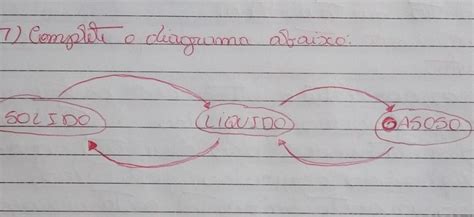 7) Complete o diagrama abaixo:
SOLIDO LIQUIDO GASOSO